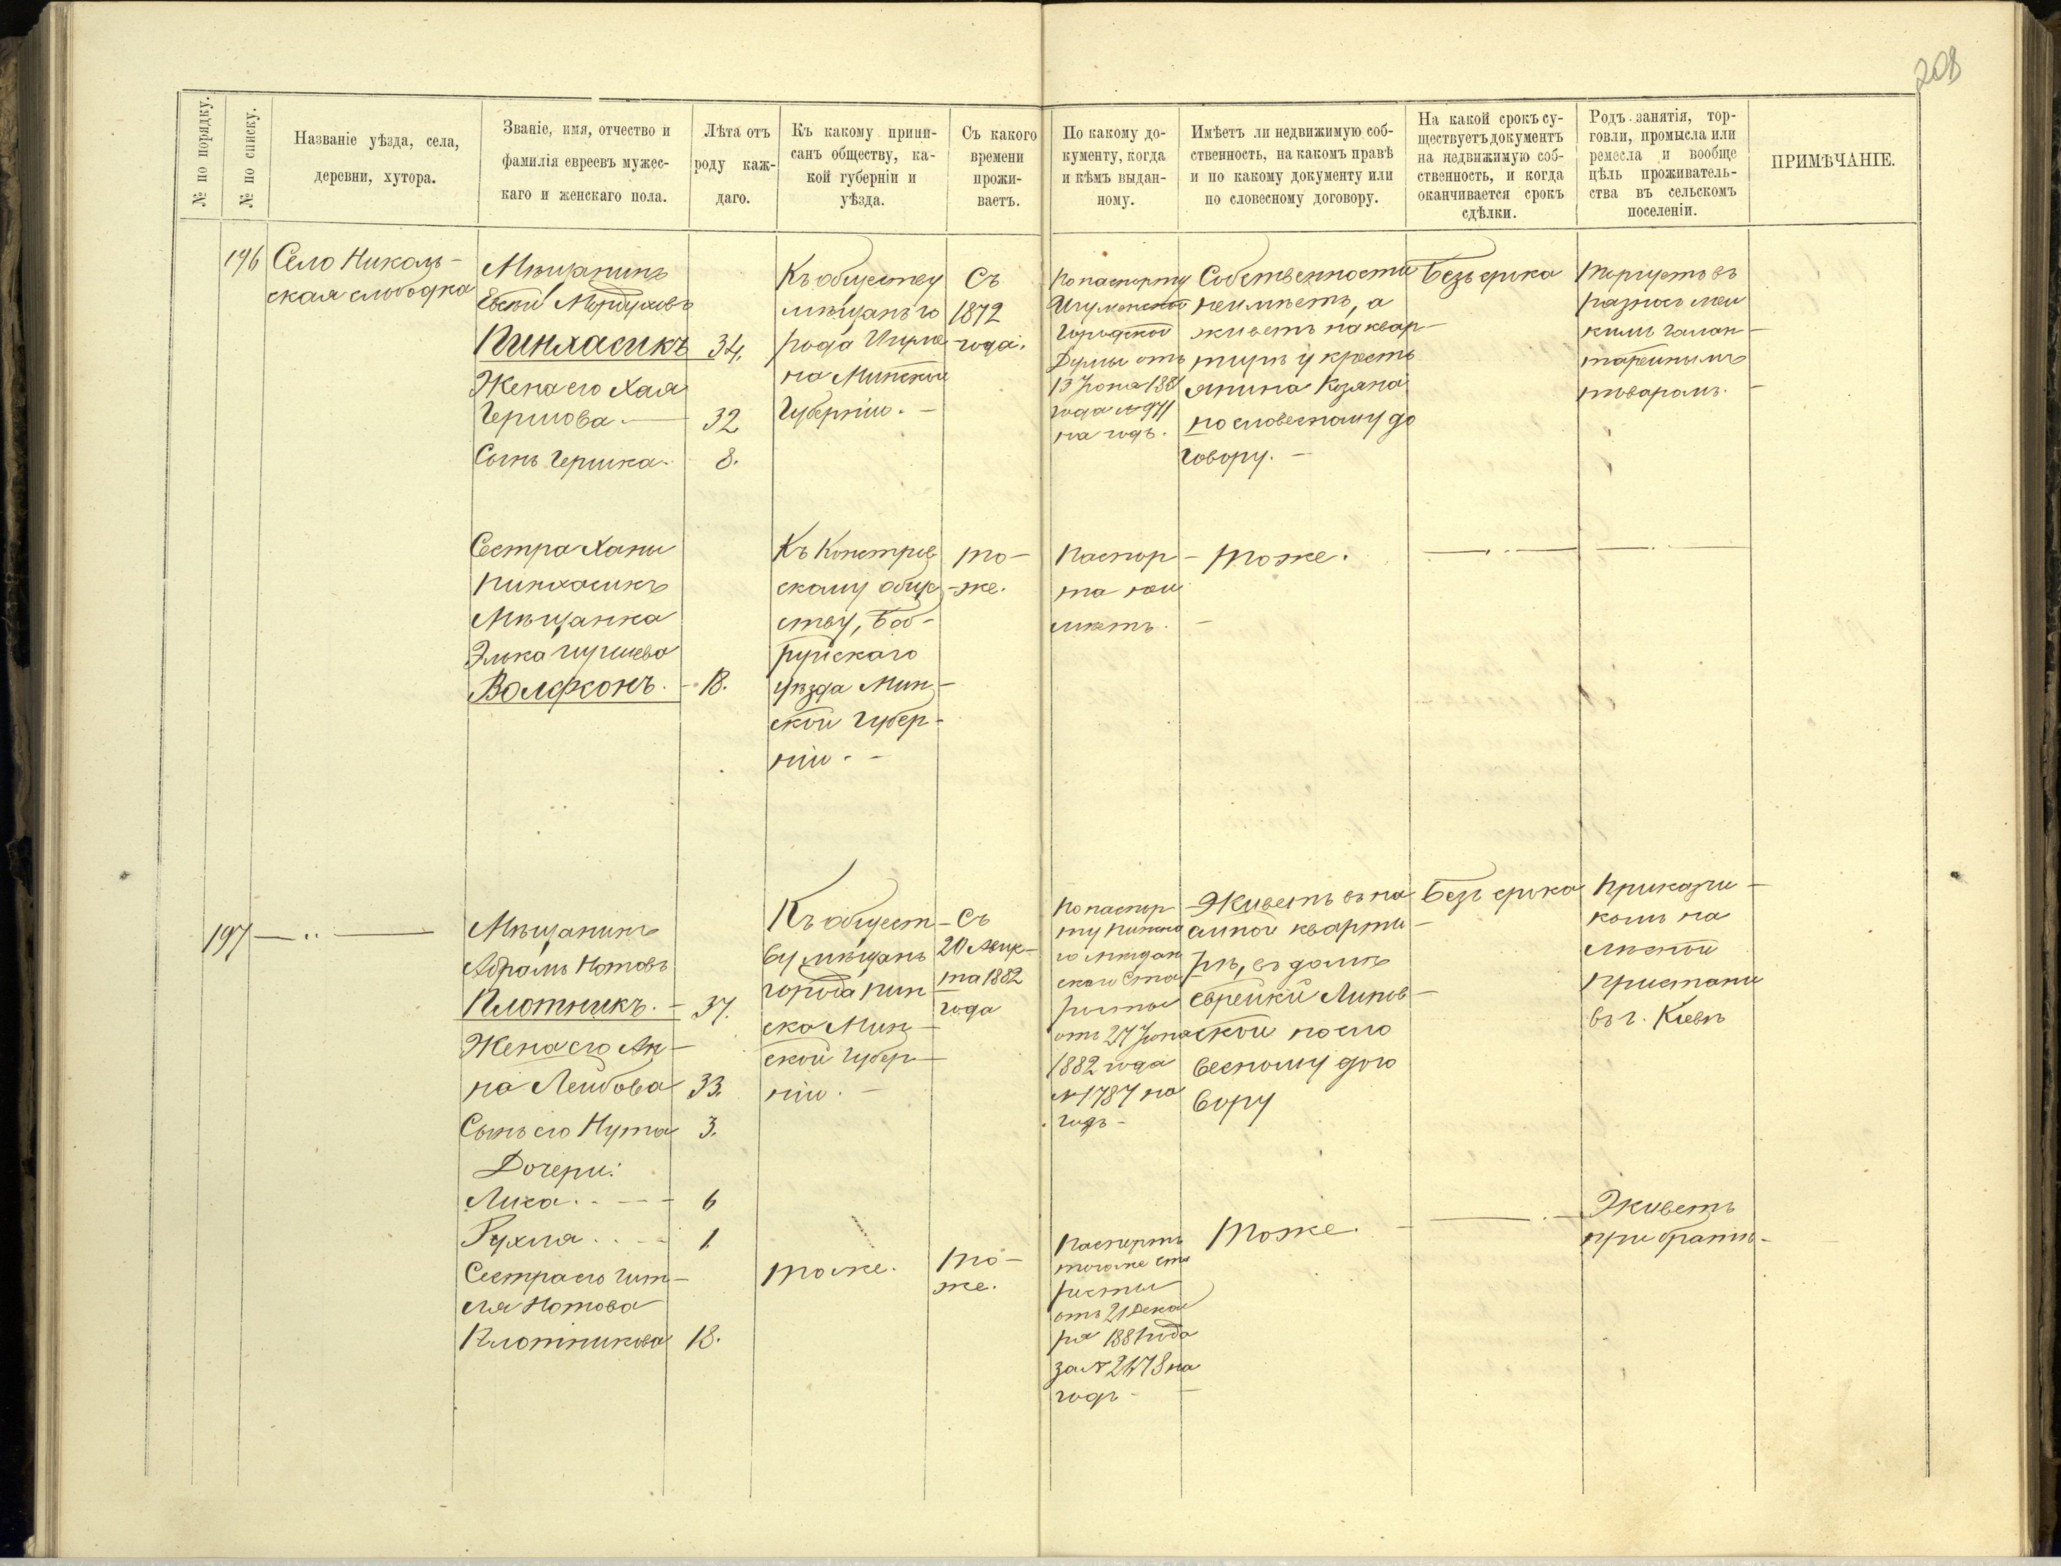 208
№ по порядку.
№ по списку.
Названіе уѣзда, села,
деревни, хутора.
Званіе, имя, отчество и
фамилія евреевъ мужес-
каго и женскаго пола.
Лѣта отъ
роду каж-
даго.
Къ какому припи-
санъ обществу, ка-
кой губерніи и
уѣзда.
Съ какого
времени
прожи-
ваетъ.
По какому до-
кументу, когда
и кѣмъ выдан-
ному.
Имѣетъ ли недвижимую соб-
ственность, на какомъ правѣ
и по какому документу или
по словесному договору.
На какой срокъ су-
ществуетъ документъ
на недвижимую соб-
ственность, и когда
оканчивается срокъ
сдѣлки.
Родъ занятія, тор-
говли, промысла или
ремесла и вообще
цѣль проживатель-
ства въ сельскомъ
поселеніи.
ПРИМѢЧАНІЕ.
196
Село Николь-
ская слободка
Мѣщанинъ
Мордуховъ
Пинхасикъ
34.
Жена его Хая
Гершова. —
32
Сынъ Гершка.
8.
Къ обществу
мѣщанъ го
рода Игуме
на Минской
Губерніи. —
Съ
1872
года.
По паспорту
Игуменской
Городской
Думы отъ
13 Іюня 1881
года № 971
на годъ.
Собственности
не имѣетъ, а
живетъ на квар-
тирѣ у кресть
янина Козана
по словесному до
говору. —
Безъ срока
Торгуетъ въ
разносъ мел
кимъ галан-
терейнымъ
товаромъ.
Сестра Ханы
Пинхасикъ
Мѣщанка
Элька
Волфсонъ. —
18.
Къ
скому общ
ству, Боб-
руйскаго
уѣзда Мин-
ской Губер-
ніи. —
то-
-же.
Паспор-
та не и
мѣетъ. —
тоже.
197
Мѣщанинъ
Абрамъ Нотовъ
Плотникъ. —
37.
Жена его Ан-
на Лейбова
33.
Сынъ его Нута
3.
Дочери:
Лика. - - -
6
Рухля. . . -
1
Сестра его Гит-
ля Нотова
Плотникова
18.
Къ общест-
ву мѣщанъ
города Пин
ска Мин-
ской Губер-
ніи. —
Съ
20 Авгус-
та 1882
года
По паспор
ту Пинска
го мѣщан
скаго Ста
росты
отъ 27 Іюня
1882 года
№ 1787 на
годъ -
Живетъ въ на
емной кварти-
рѣ, въ домѣ
еврейки Липов-
ской по сло
весному дого
вору
Безъ срока
Прикащи-
комъ на
лѣсной
пристани
въ г. Кіевѣ
тоже.
то-
же.
Паспортъ
того же ста
росты
отъ 21 Декаб
ря 1881 года
за № 2178 на
годъ -
тоже.
Живетъ
при братѣ-